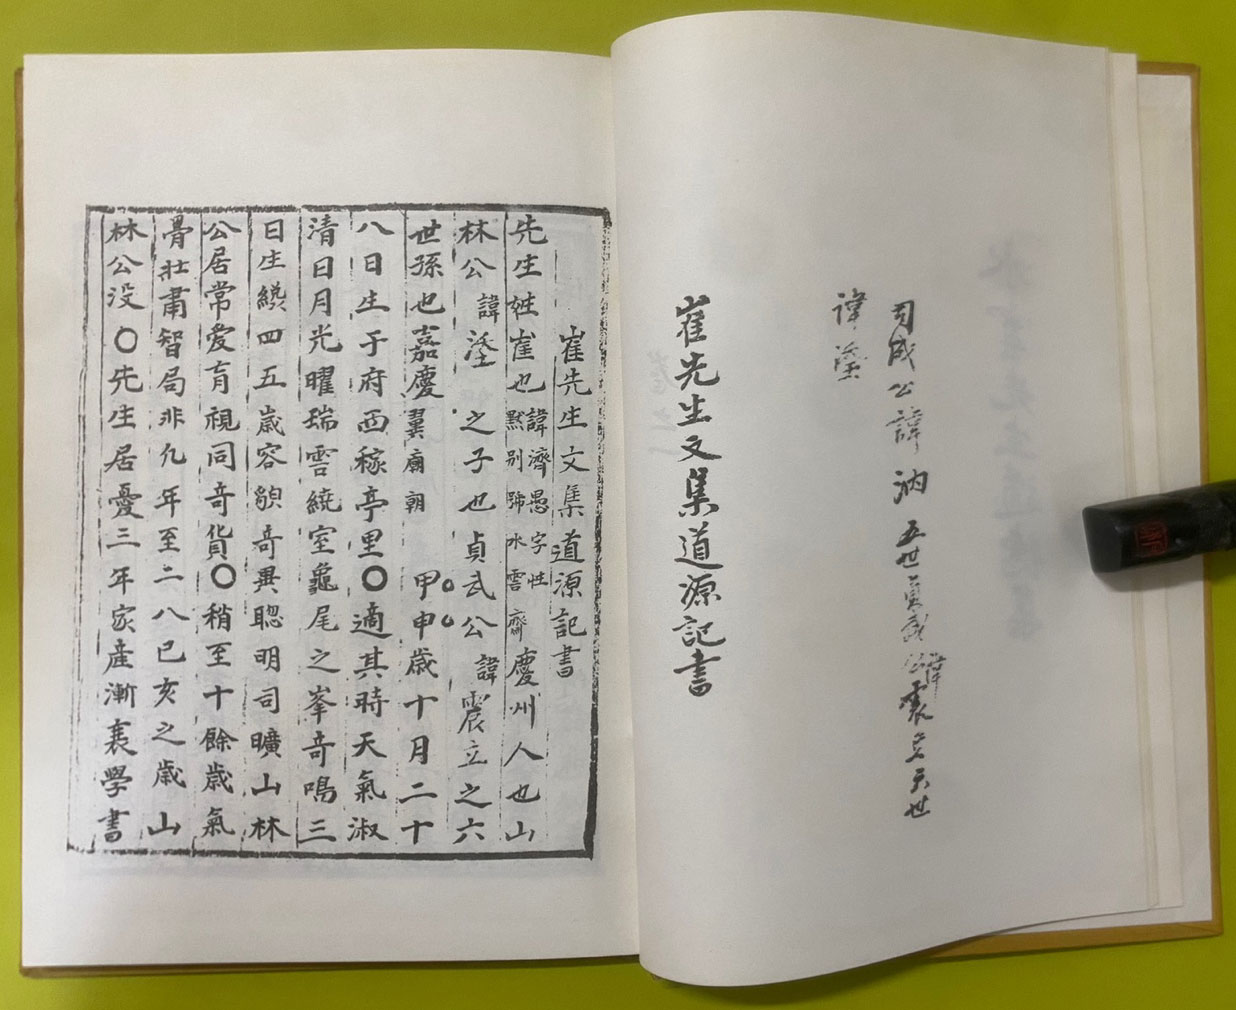 司成公諱汭五世貞武公諱震立六世
諱
崔先生文集道源記書
崔先生文集道源記書
先生姓崔也諱濟愚字性默別號水雲齋慶州人也山
林公諱之子也貞武公諱震立之六
世孫也嘉慶翼廟朝甲申歲十月二十
八日生于府西稼亭里○適其時天氣淑
清日月光曜瑞雲繞室龜尾之峯奇鳴三
日生纔四五歲容貌奇異聰明司曠山林
公居常愛育視同奇貨○稍至十餘歲氣
骨壯肅智局非凡年至二八已亥之歲山
林公没○先生居憂三年家産漸衰學書